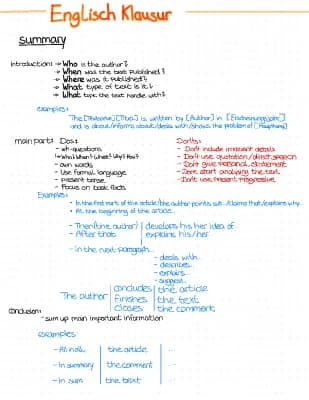 Englisch Klausur
summary
Introduction: → Who is the author?
→ When was the text published?
→ Where was it published?
→ What type of text is it?
→ What does the text handle with?
examples:
The [Textsorte] [Titel] is written by [Author] in [Erscheinungsjahr]
and is about/informs about/deals with/shows the problem of [Hauptthema]
main part: Dos: Don'ts:
- wh-questions - Don't include irrelevant details
↳ Who? When? Where? Why? How? - Don't use quotation/direct speech
- own words - Don't give personal statement
- Use formal language - Don't start analysing the text
- present tense - Don't use present progressive
- Focus on basic facts
Examples:
- In the first part of the article /the author points out... /claims that /explains why...
- At the beginning of the article...
- Then (the author) develops his/her idea of
- After that explains his/her
- in the next paragraph...
- deals with...
- describes...
- explains...
- suggest...
The author concludes the article
finishes the text
closes the comment
Conclusion:
- sum up main important information
examples:
- All in all, the article ...
- In summary the comment ...
- In sum the text ...